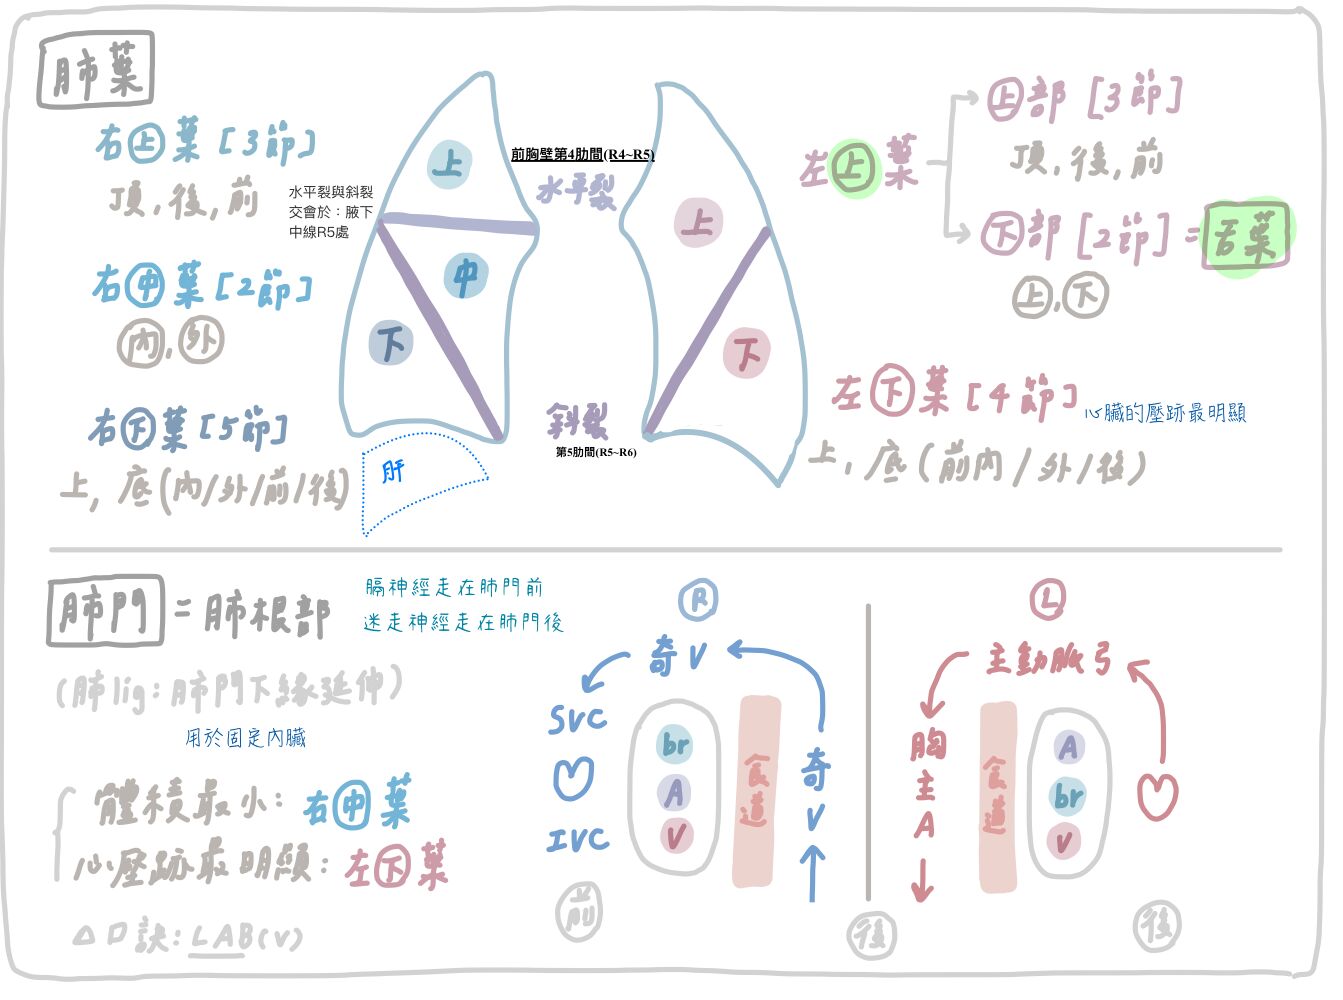 肺葉
右上葉[3節]
頂,後,前
水平裂與斜裂
交會於：腋下
中線R5處
右中葉[2節]
內,外
右下葉[5節]
上,底(內/外/前/後)
上
中
下
肝
前胸壁第4肋間(R4~R5)
水平裂
斜裂
第5肋間(R5~R6)
上
下
左上葉
上部[3節]
頂,後,前
下部[2節]=舌葉
上,下
左下葉[4節]
心臟的壓跡最明顯
上,底(前內/外/後)
肺門=肺根部
膈神經走在肺門前
迷走神經走在肺門後
(肺lig:肺門下緣延伸)
用於固定內臟
體積最小:右中葉
心壓跡最明顯:左下葉
△口訣:LAB(V)
R
奇V
SVC
IVC
br
A
V
食道
奇V
前
後
L
主動脈弓
胸主A
食道
A
br
V
後